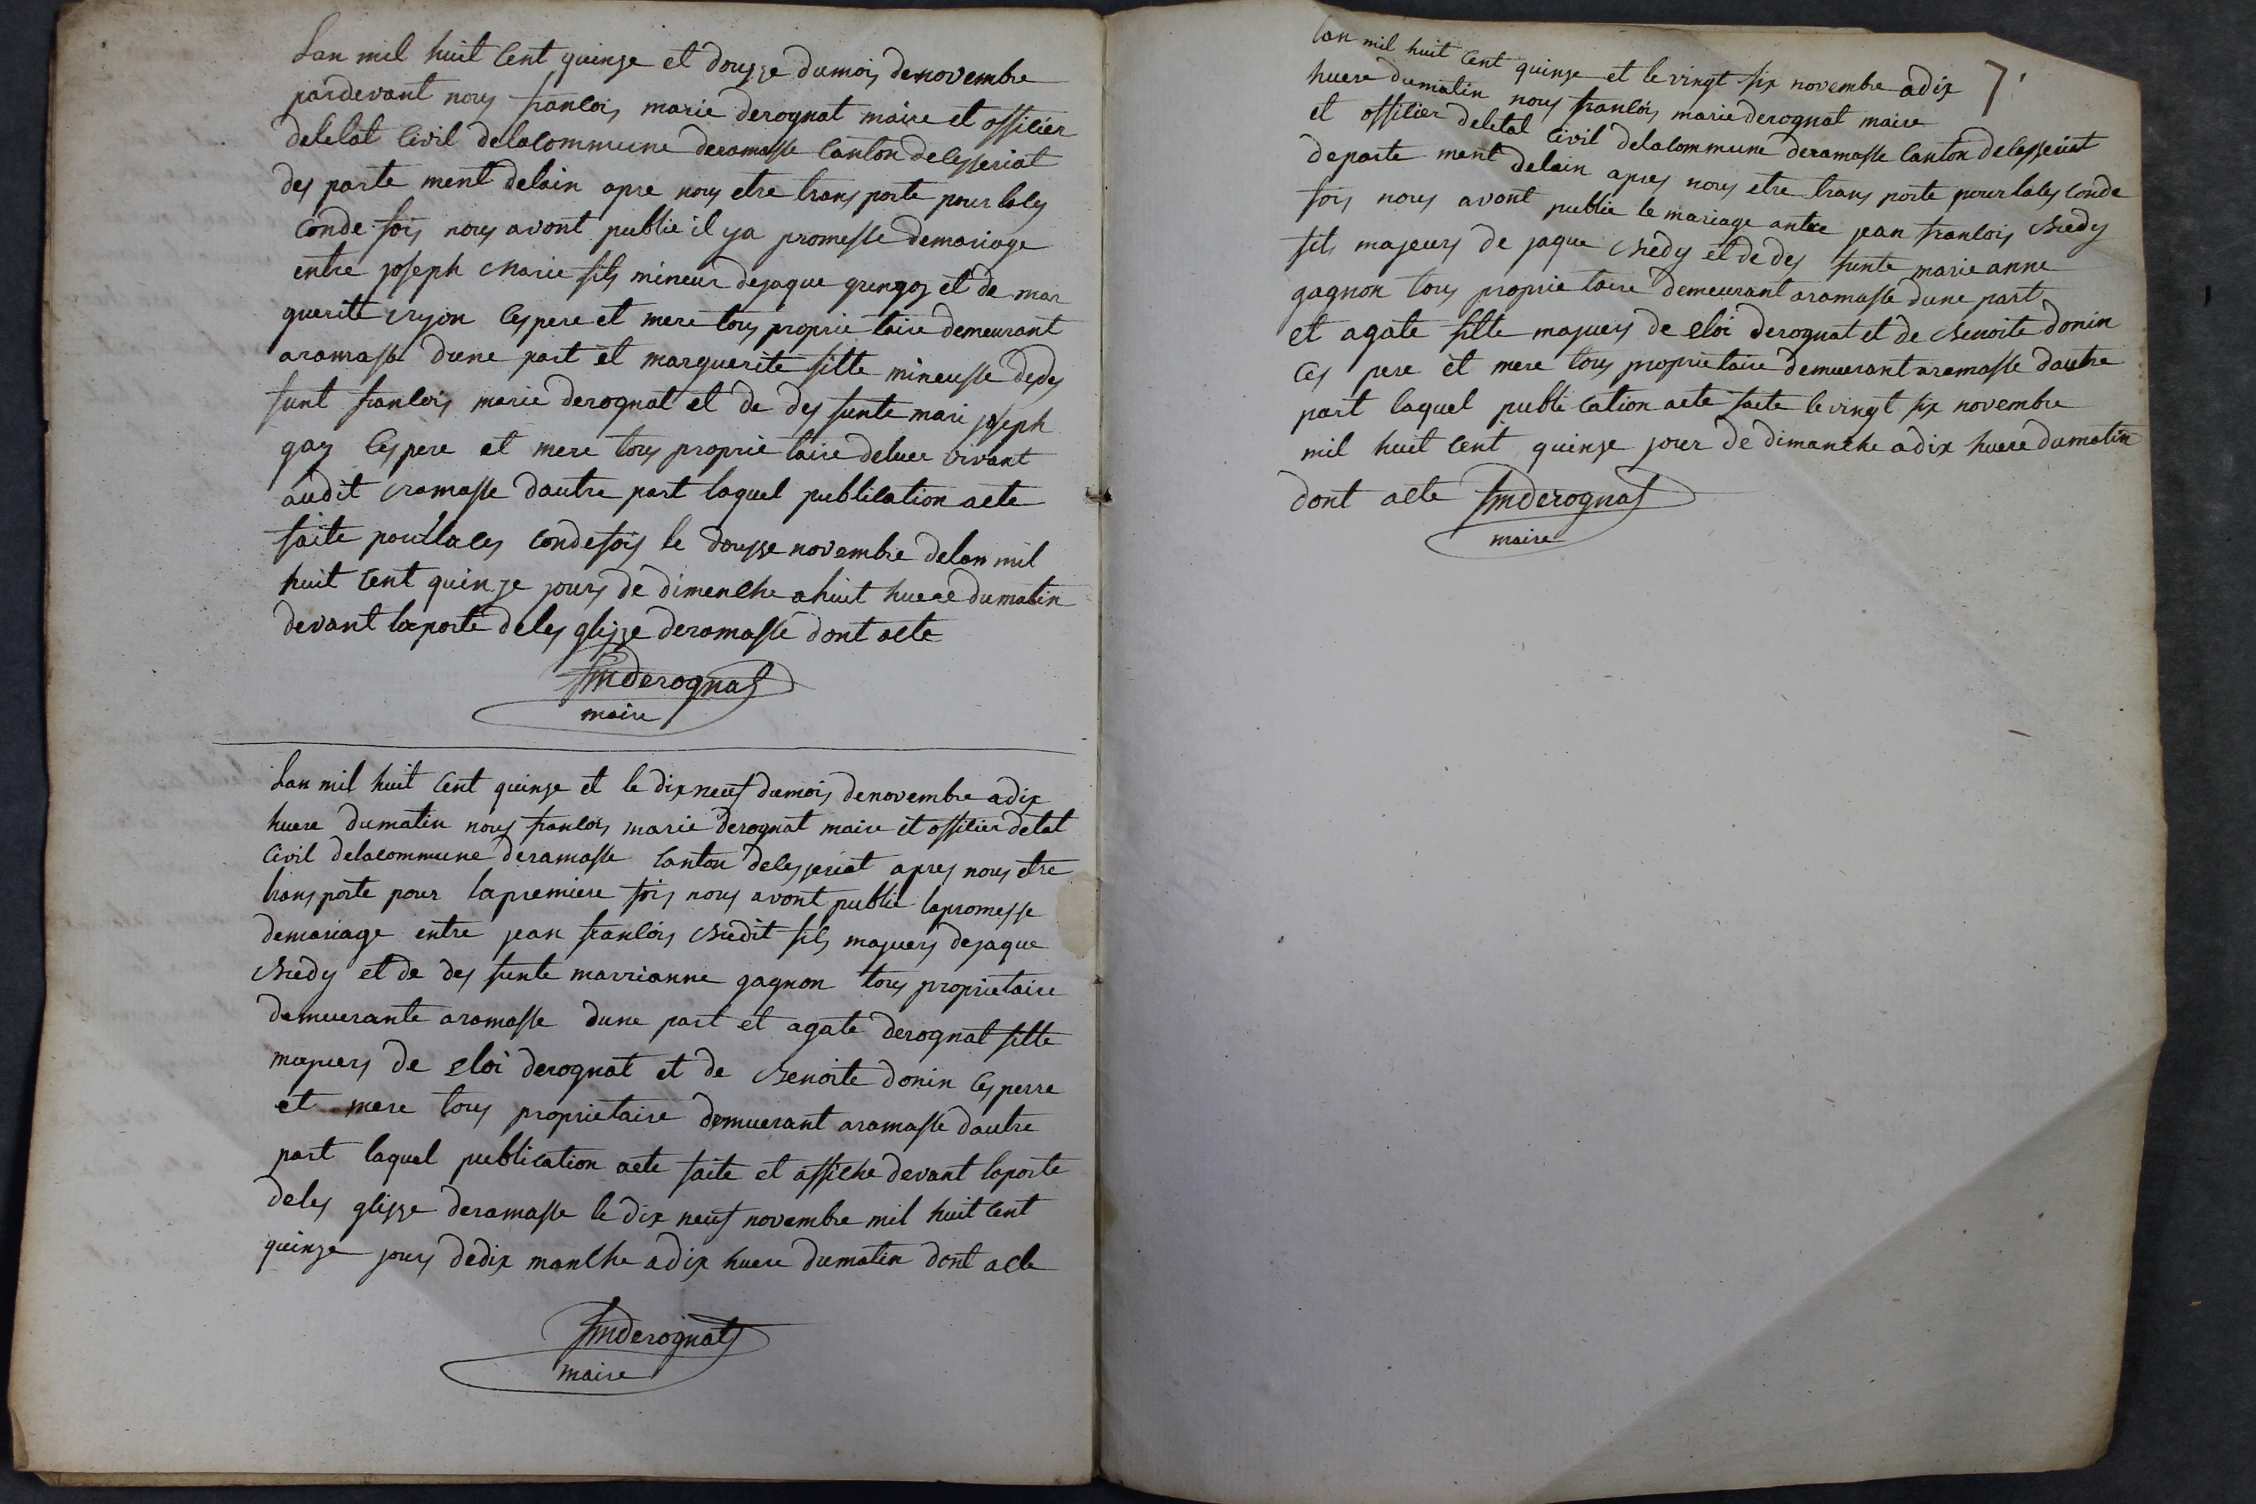 Lan mil huit Cent quinze et dousse dumois denovembre
pardevant nous francois marie derognat maire et officier
deletat Civil delacommune deramasse Canton deCesseriat
des parte ment delain apre nous etre trans porte pour lases
conde fois nous avont publie il ya promesse demariage
entre joseph marie fils mineur dejaque grengoz et de mar
guerite Ce pere et mere tous proprie taire demeurant
aramasse dune part et marguerite fille mineusse dedes
funt francois marie derognat et de des funte mari joseph
gay Ces pere et mere tous proprie taire deluer vivant
audit ramasse dautre part laquel publication aete
faite pour lases condefois le dousse novembre delan mil
huit Cent quinze jours de dimenche ahuit huere dumatin
devant laporte deles glisse deramasse dont acte
fmderognat
maire
Lan mil huit Cent quinze et le dixneuf dumois denovembre adix
huere dumatin nous francois marie derognat maire et officier detat
Civil delacommune deramasse Canton deCesseriat apres nous etre
trans porte pour lapremiere fois nous avont publie lapromesse
demariage entre jean francois Bredit fils majuers dejaque
Bredy et de des funte marrianne gagnon tous proprietaire
demuerante aramasse dune part et agate derognat fille
majuers de eloi derognat et de Benoite donin Ces perre
et mere tous proprietaire demuerant aramasse dautre
part laquel publication aete faite et affiche devant laporte
deles glisse deramasse le dix neuf novembre mil huit Cent
quinze jours dedix manche adix huere dumatin dont acte
fmderognat
maire
7
lan mil huit Cent quinze et le vingt six novembre adix
huere dumatin nous francois marie derognat maire
et officier deletat Civil delacommune deramasse Canton deCesseriat
departe ment delain apres nous etre trans porte pour lases conde
fois nous avont publie le mariage antre jean francois Bredy
fils majeurs de jaque Bredy et de des funte marie anne
gagnon tous proprie taire demeurant aramasse dune part
et agate fille majuers de eloi derognat et de Benoite donin
Ces pere et mere tous proprietaire demuerant aramasse dautre
part laquel publi cation aete faite le vingt six novembre
mil huit Cent quinze jour de dimanche adix huere dumatin
dont acte fmderognat
maire